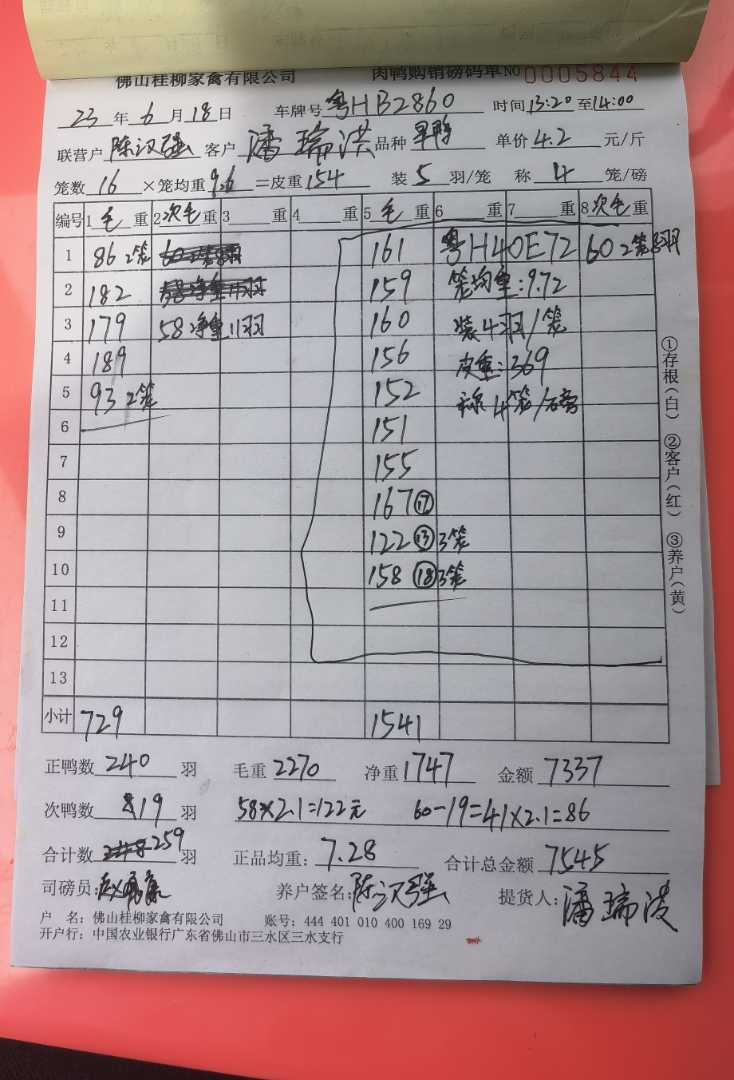 佛山桂柳家禽有限公司 肉鸭购销磅码单 NO 0005844
23 年 6 月 18 日 车牌号 粤HB2860 时间 13:20 至 14:00
联营户 陈汉强 客户 潘瑞洪 品种 旱鸭 单价 4.2 元/斤
笼数 16 ×笼均重 9.6 =皮重 154 装 5 羽/笼 称 4 笼/磅
编号 1 毛 重 2 次毛 重 3 重 4 重 5 毛 重 6 重 7 重 8 次毛 重
1 86 2笼 161 粤H40E72 60 2笼8羽
2 182 159 笼均重:9.72
3 179 58净重11羽 160 装4羽/笼
4 189 156 皮重:369
5 93 2笼 152 称4笼/磅
6 151
7 155
8 167 ⑰
9 122 ⑬ 3笼
10 158 ⑱ 3笼
11
12
13
小计 729 1541
①存根(白) ②客户(红) ③养户(黄)
正鸭数 240 羽 毛重 2270 净重 1747 金额 7337
次鸭数 19 羽 58×2.1=122元 60-19=41×2.1=86
合计数 259 羽 正品均重: 7.28 合计总金额 7545
司磅员: 养户签名: 陈汉强 提货人: 潘瑞洪
户 名: 佛山桂柳家禽有限公司 账号: 444 401 010 400 169 29
开户行: 中国农业银行广东省佛山市三水区三水支行